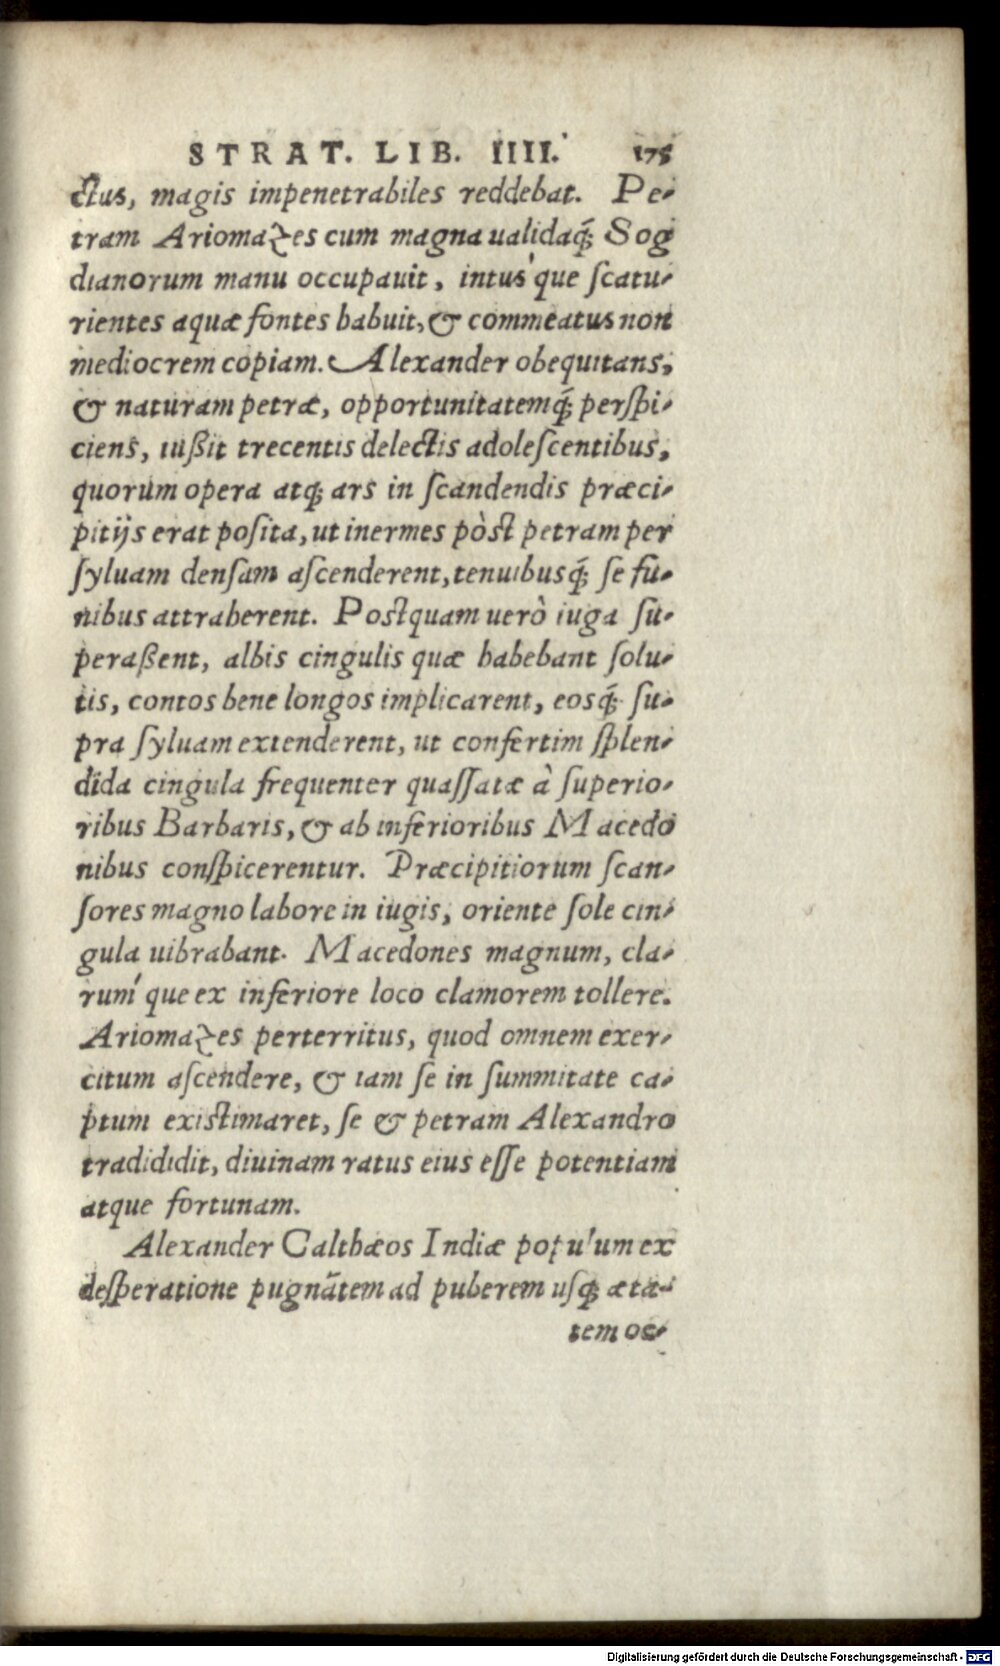 STRAT. LIB. IIII. 175
ctus, magis impenetrabiles reddebat. Pe-
tram Ariomazes cum magna ualidaq́; Sog
dianorum manu occupauit, intus'que ſcatu-
rientes aquæ fontes habuit, & commeatus non
mediocrem copiam. Alexander obequitans,
& naturam petræ, opportunitatemq́; perſpi-
ciens, iußit trecentis delectis adoleſcentibus,
quorum opera atq; ars in ſcandendis præci-
pitijs erat poſita, ut inermes pòst petram per
ſyluam denſam aſcenderent, tenuibusq́; ſe fu-
nibus attraherent. Postquam uerò iuga ſu-
peraßent, albis cingulis quæ habebant ſolu-
tis, contos bene longos implicarent, eosq́; ſu-
pra ſyluam extenderent, ut confertim ſplen-
dida cingula frequenter quaſſatæ à ſuperio-
ribus Barbaris, & ab inferioribus Macedo
nibus conſpicerentur. Præcipitiorum ſcan-
ſores magno labore in iugis, oriente ſole cin-
gula uibrabant. Macedones magnum, cla-
rum'que ex inferiore loco clamorem tollere.
Ariomazes perterritus, quod omnem exer-
citum aſcendere, & iam ſe in ſummitate ca-
ptum existimaret, ſe & petram Alexandro
tradidit, diuinam ratus eius eſſe potentiam
atque fortunam.
Alexander Calthæos Indiæ populum ex
deſperatione pugnãtem ad puberem uſq; æta-
tem oc-
Digitalisierung gefördert durch die Deutsche Forschungsgemeinschaft - DFG